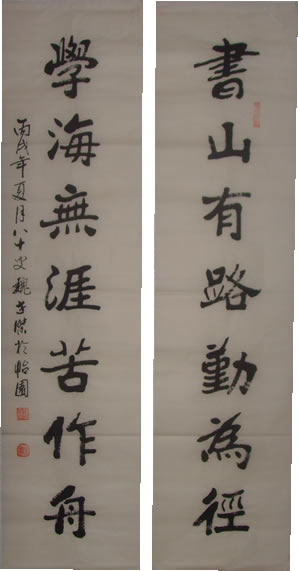 書山有路勤為徑
學海無涯苦作舟
丙戌年夏月八十叟魏幸傑於怡園